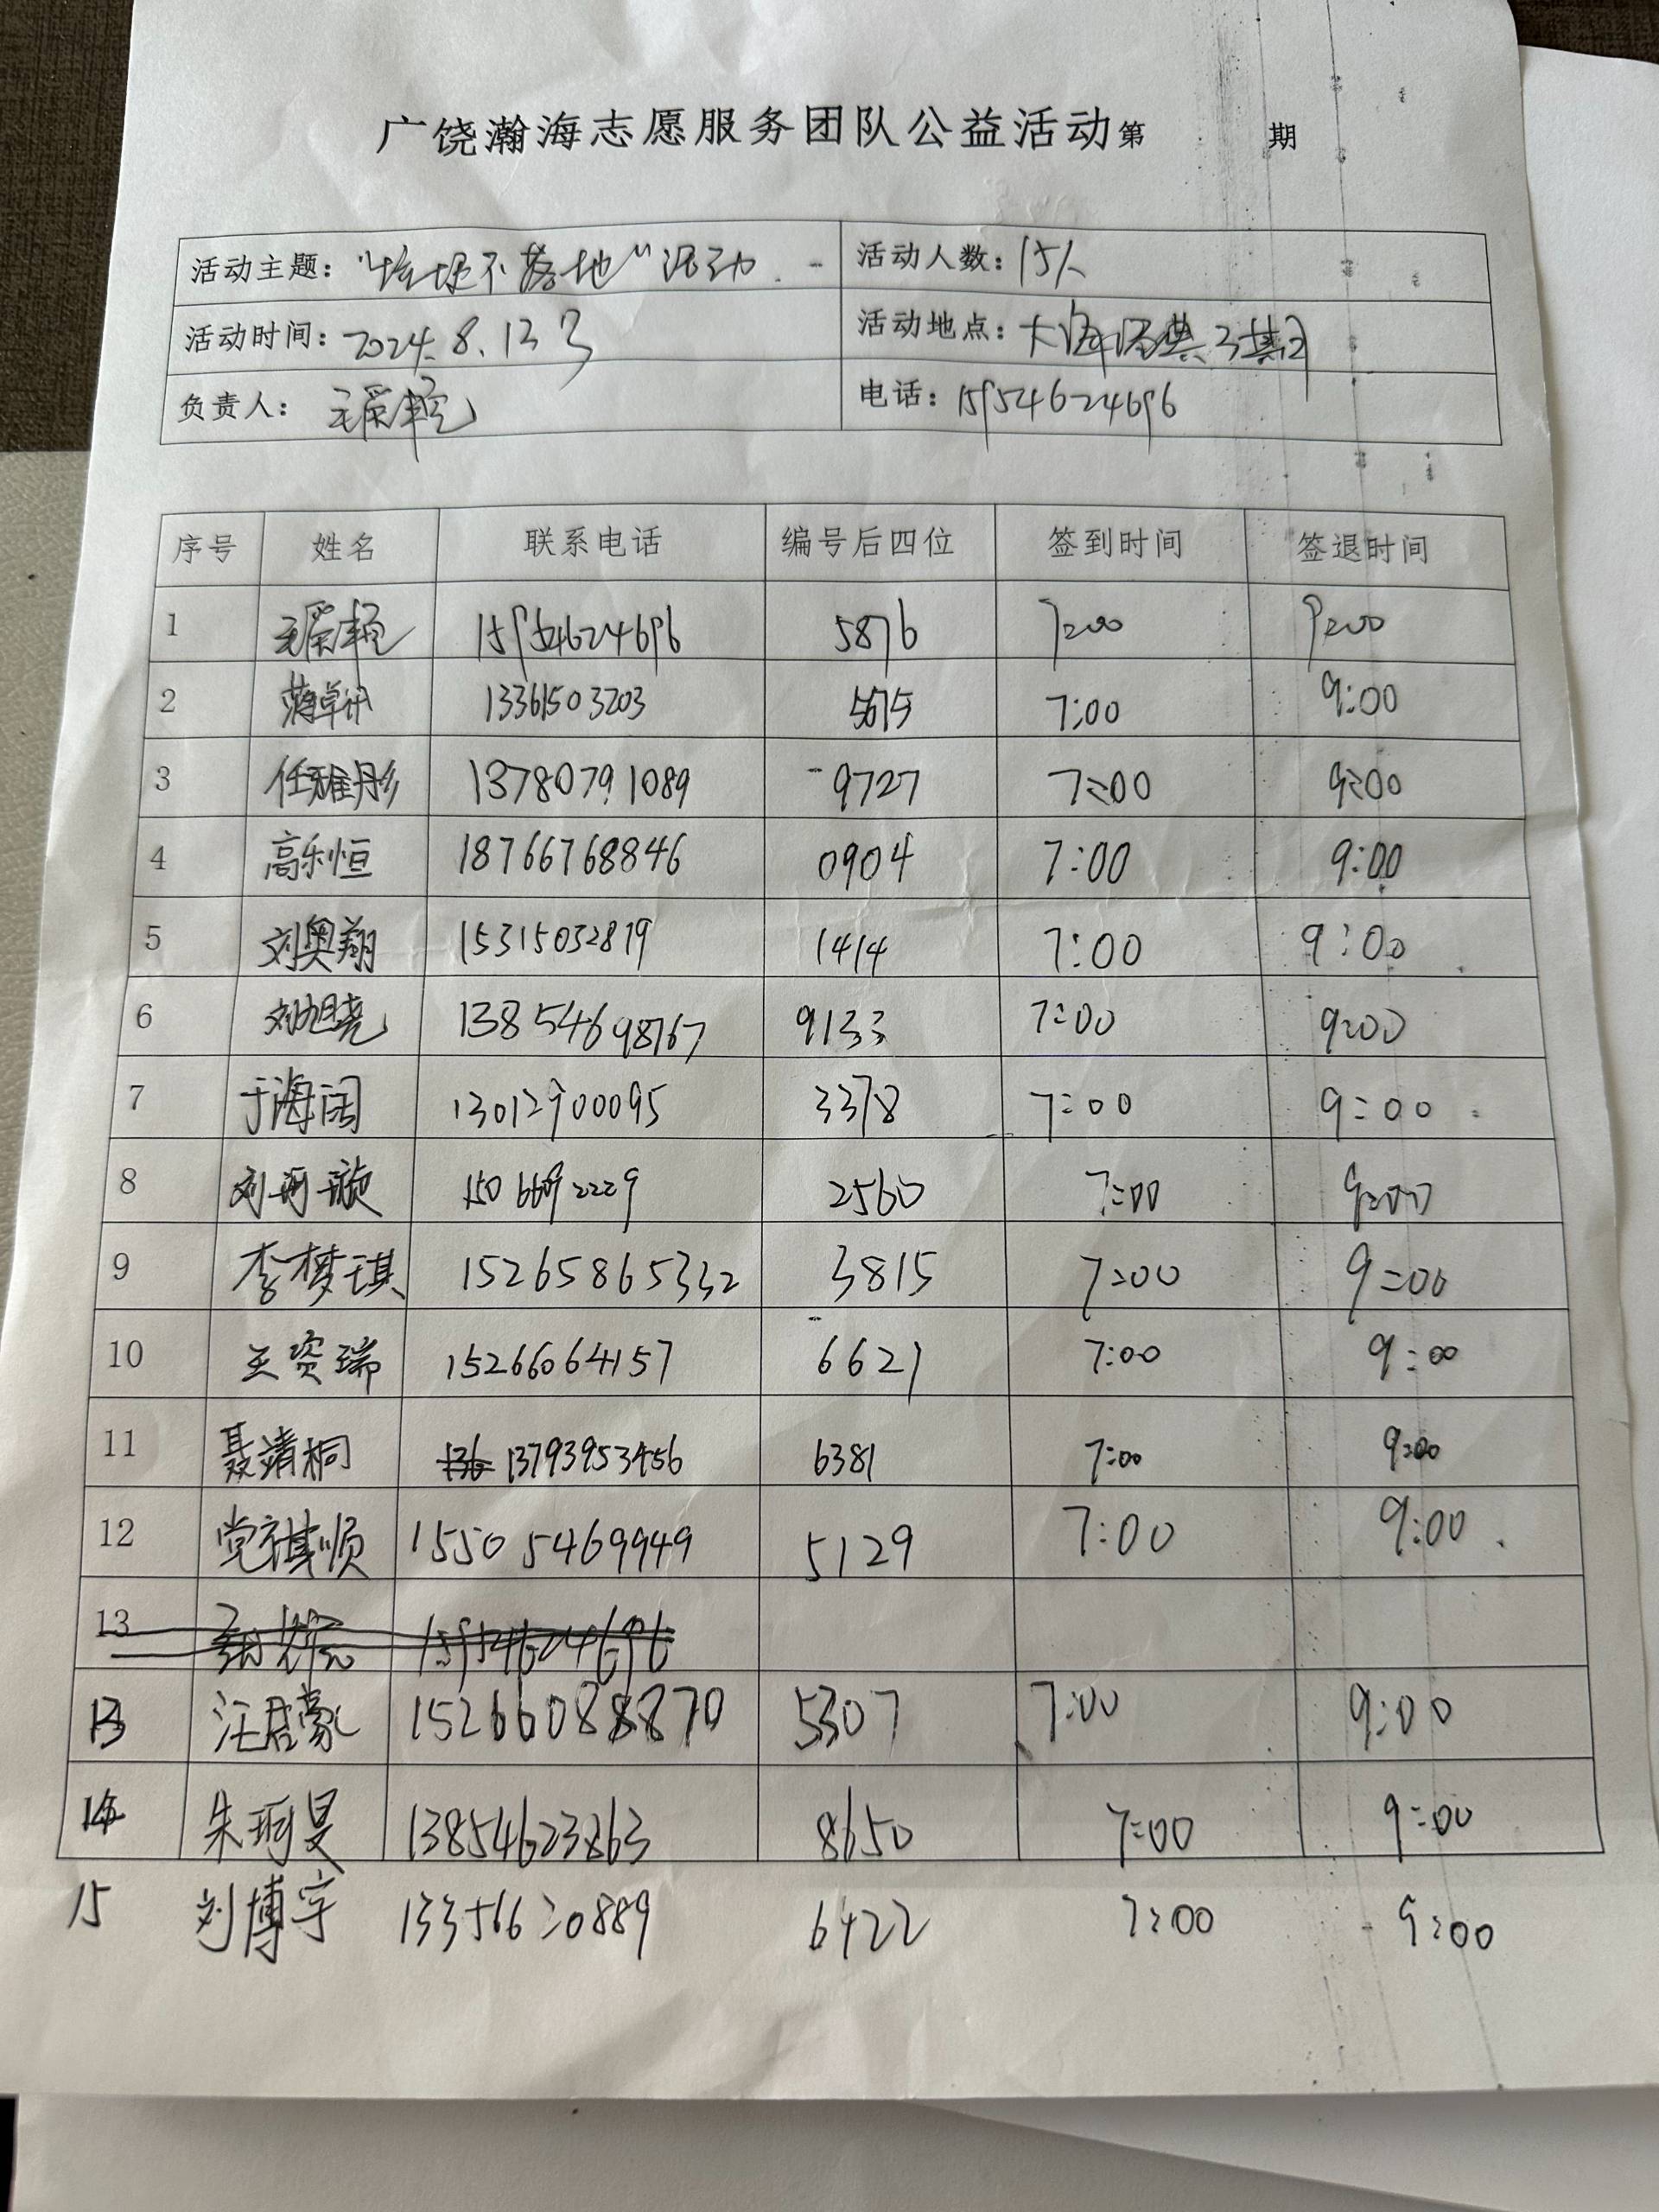 广饶瀚海志愿服务团队公益活动第 期
活动主题：“垃圾不落地”活动 活动人数：15人
活动时间：2024.8.12 活动地点：大海经典三期
负责人： 电话：15954624696
序号 姓名 联系电话 编号后四位 签到时间 签退时间
1 15954624696 5876 7:00 9:00
2 13361503203 5675 7:00 9:00
3 任雅彤 13780791089 9727 7:00 9:00
4 高乐恒 18766768846 0904 7:00 9:00
5 刘奥翔 15315032819 1414 7:00 9:00
6 刘旭尧 13854698767 9133 7:00 9:00
7 于海阔 13012900095 3378 7:00 9:00
8 刘珂璇 15066092229 2560 7:00 9:00
9 李梦琪 15265865332 3815 7:00 9:00
10 王资瑞 15266064157 6621 7:00 9:00
11 聂靖桐 136 13793953456 6381 7:00 9:00
12 党祺顺 15505469949 5129 7:00 9:00
13 15954624696
13 汪居豪 15266088870 5307 7:00 9:00
14 朱珂旻 13854623863 8650 7:00 9:00
15 刘博宇 13356620889 6422 7:00 9:00